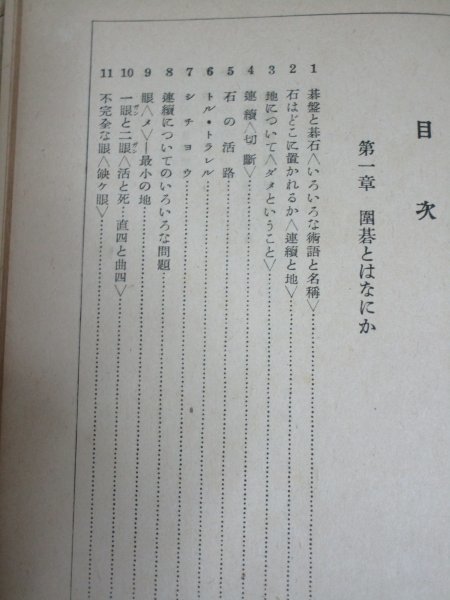 目次
第一章 圍碁とはなにか
1 碁盤と碁石〈いろいろな術語と名稱〉
2 石はどこに置かれるか〈連續と地〉
3 地について〈ダメということ〉
4 連續〈切斷〉
5 石の活路
6 トル・トラレル
7 シチヨウ
8 連續についてのいろいろな問題
9 眼〈メ〉―最小の地
10 一眼と二眼〈活と死…直四と曲四〉
11 不完全な眼〈缺ケ眼〉